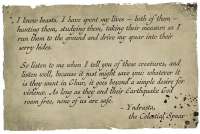 I know beasts. I have spent my lives – both of them –
hunting them, studying them, taking their measure as I
run them to the ground and drive my spear into their
sorry hides.
So listen to me when I tell you of these creatures, and
listen well, because it just might save your
whatever it
is they want in Ghur, it goes beyond a simple desire for
violence. As long as they and their Earthquake God
roam free, none of us are safe.
- Yndrasta,
the Celestial Spear